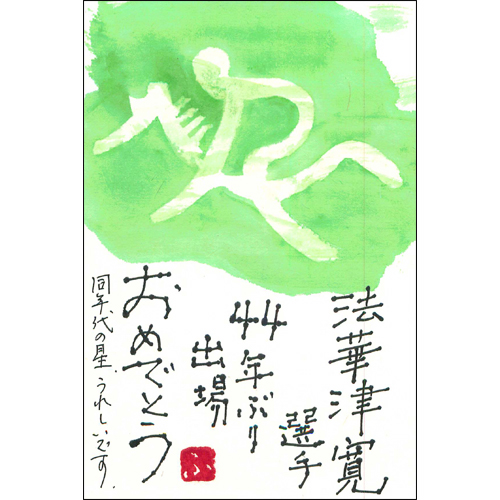 法華津寛
選手
44年ぶり
出場
おめでとう
同年代の星、うれしいです。
ふ